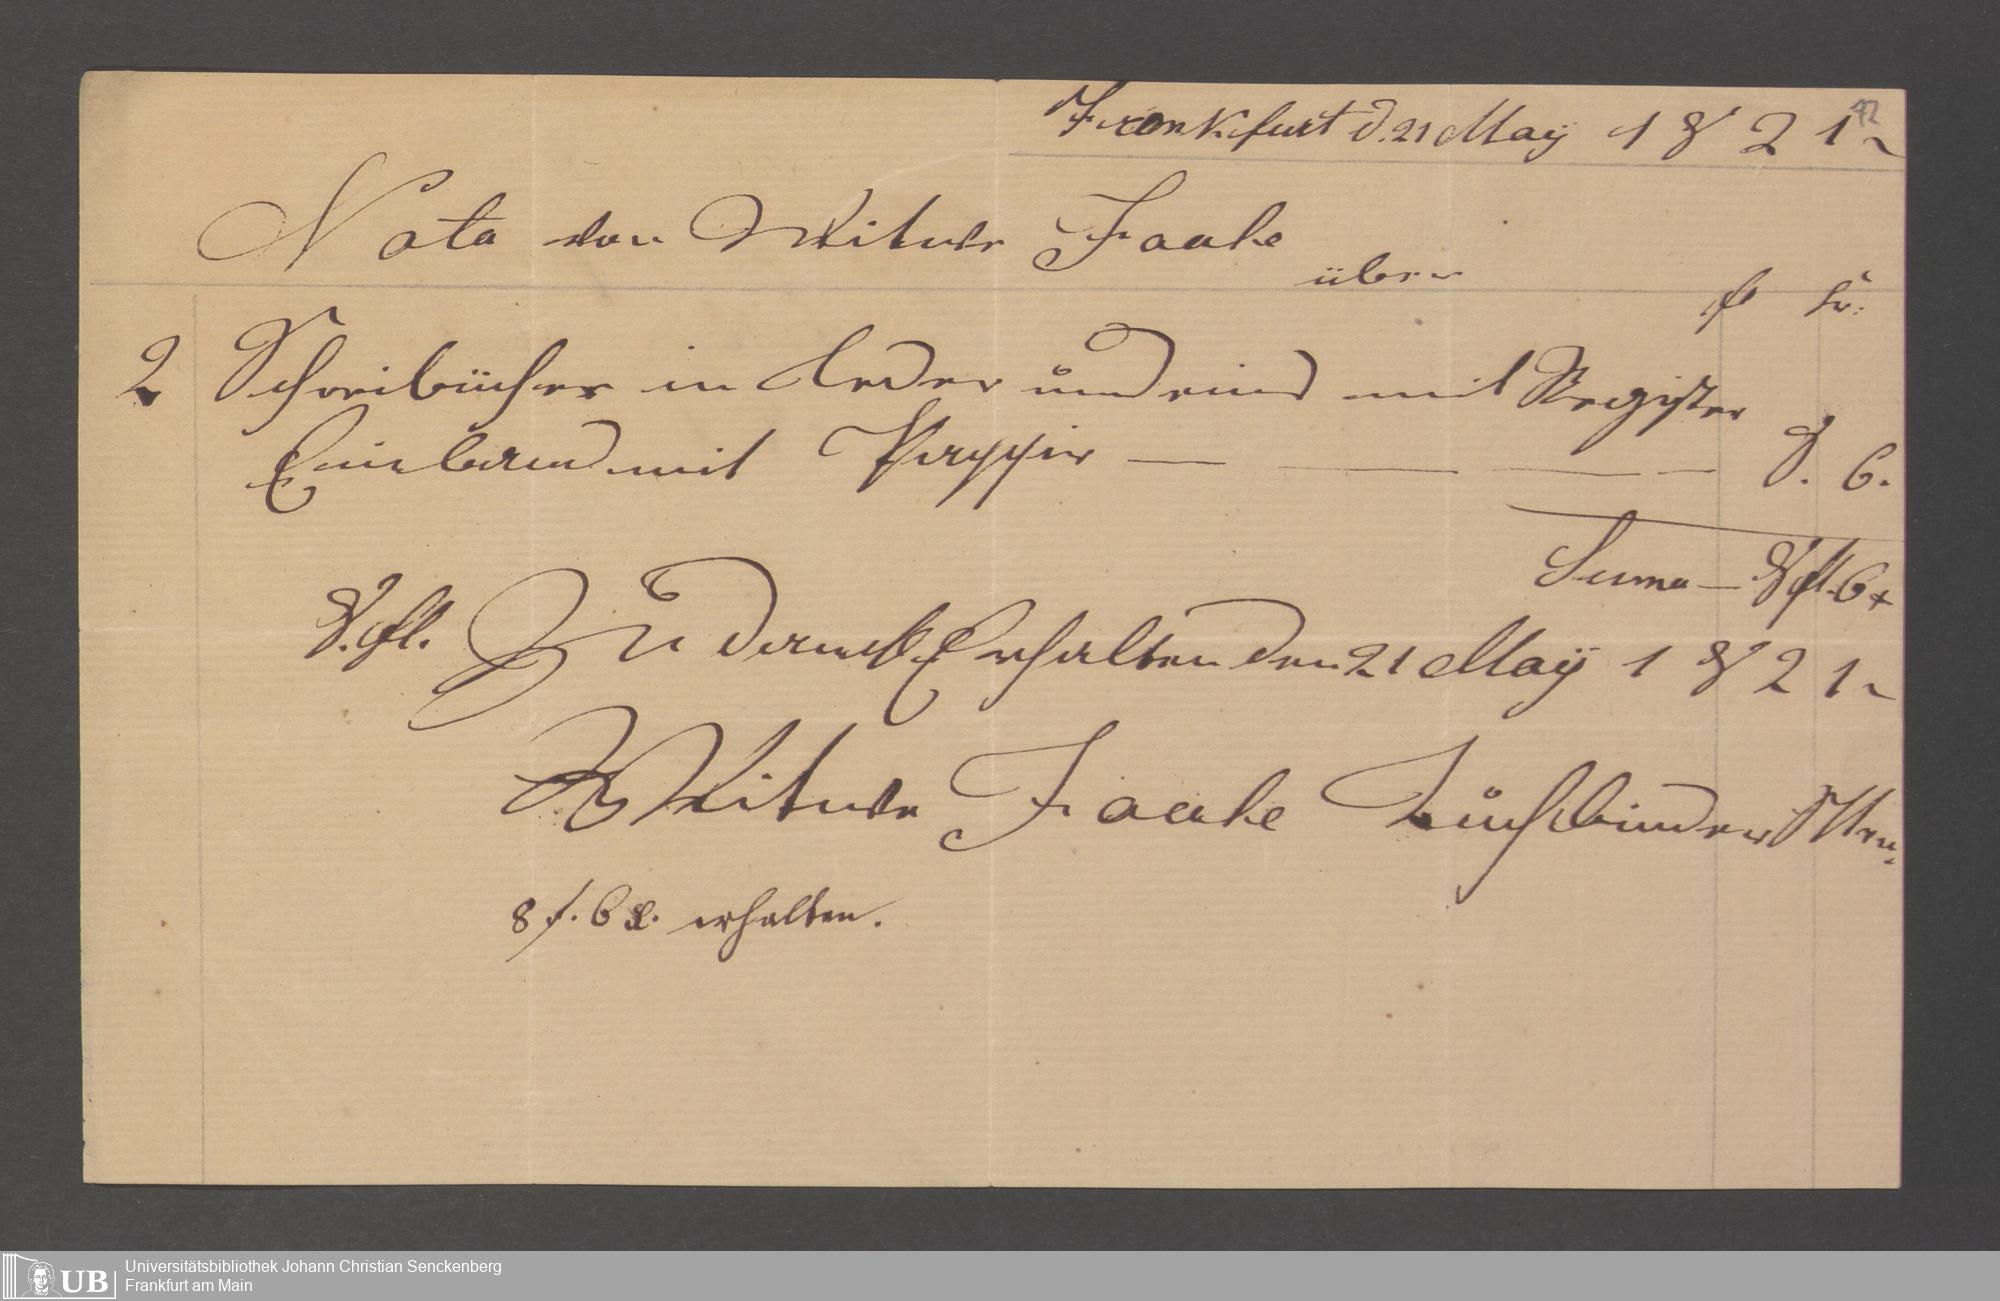 42
Frankfurt d. 21 May 1821
Nota von Witwe Faake
über
fl kr:
2 Schreibücher in Leder und eins mit Register
Einband mit Pappir — — — — 8. 6.
Suma — 8 fl. 6 x
8. fl. Zu danck Erhalten den 21 May 1821
Witwe Faake Buchbinder
8 f. 6 x. erhalten.
Universitätsbibliothek Johann Christian Senckenberg
UB Frankfurt am Main